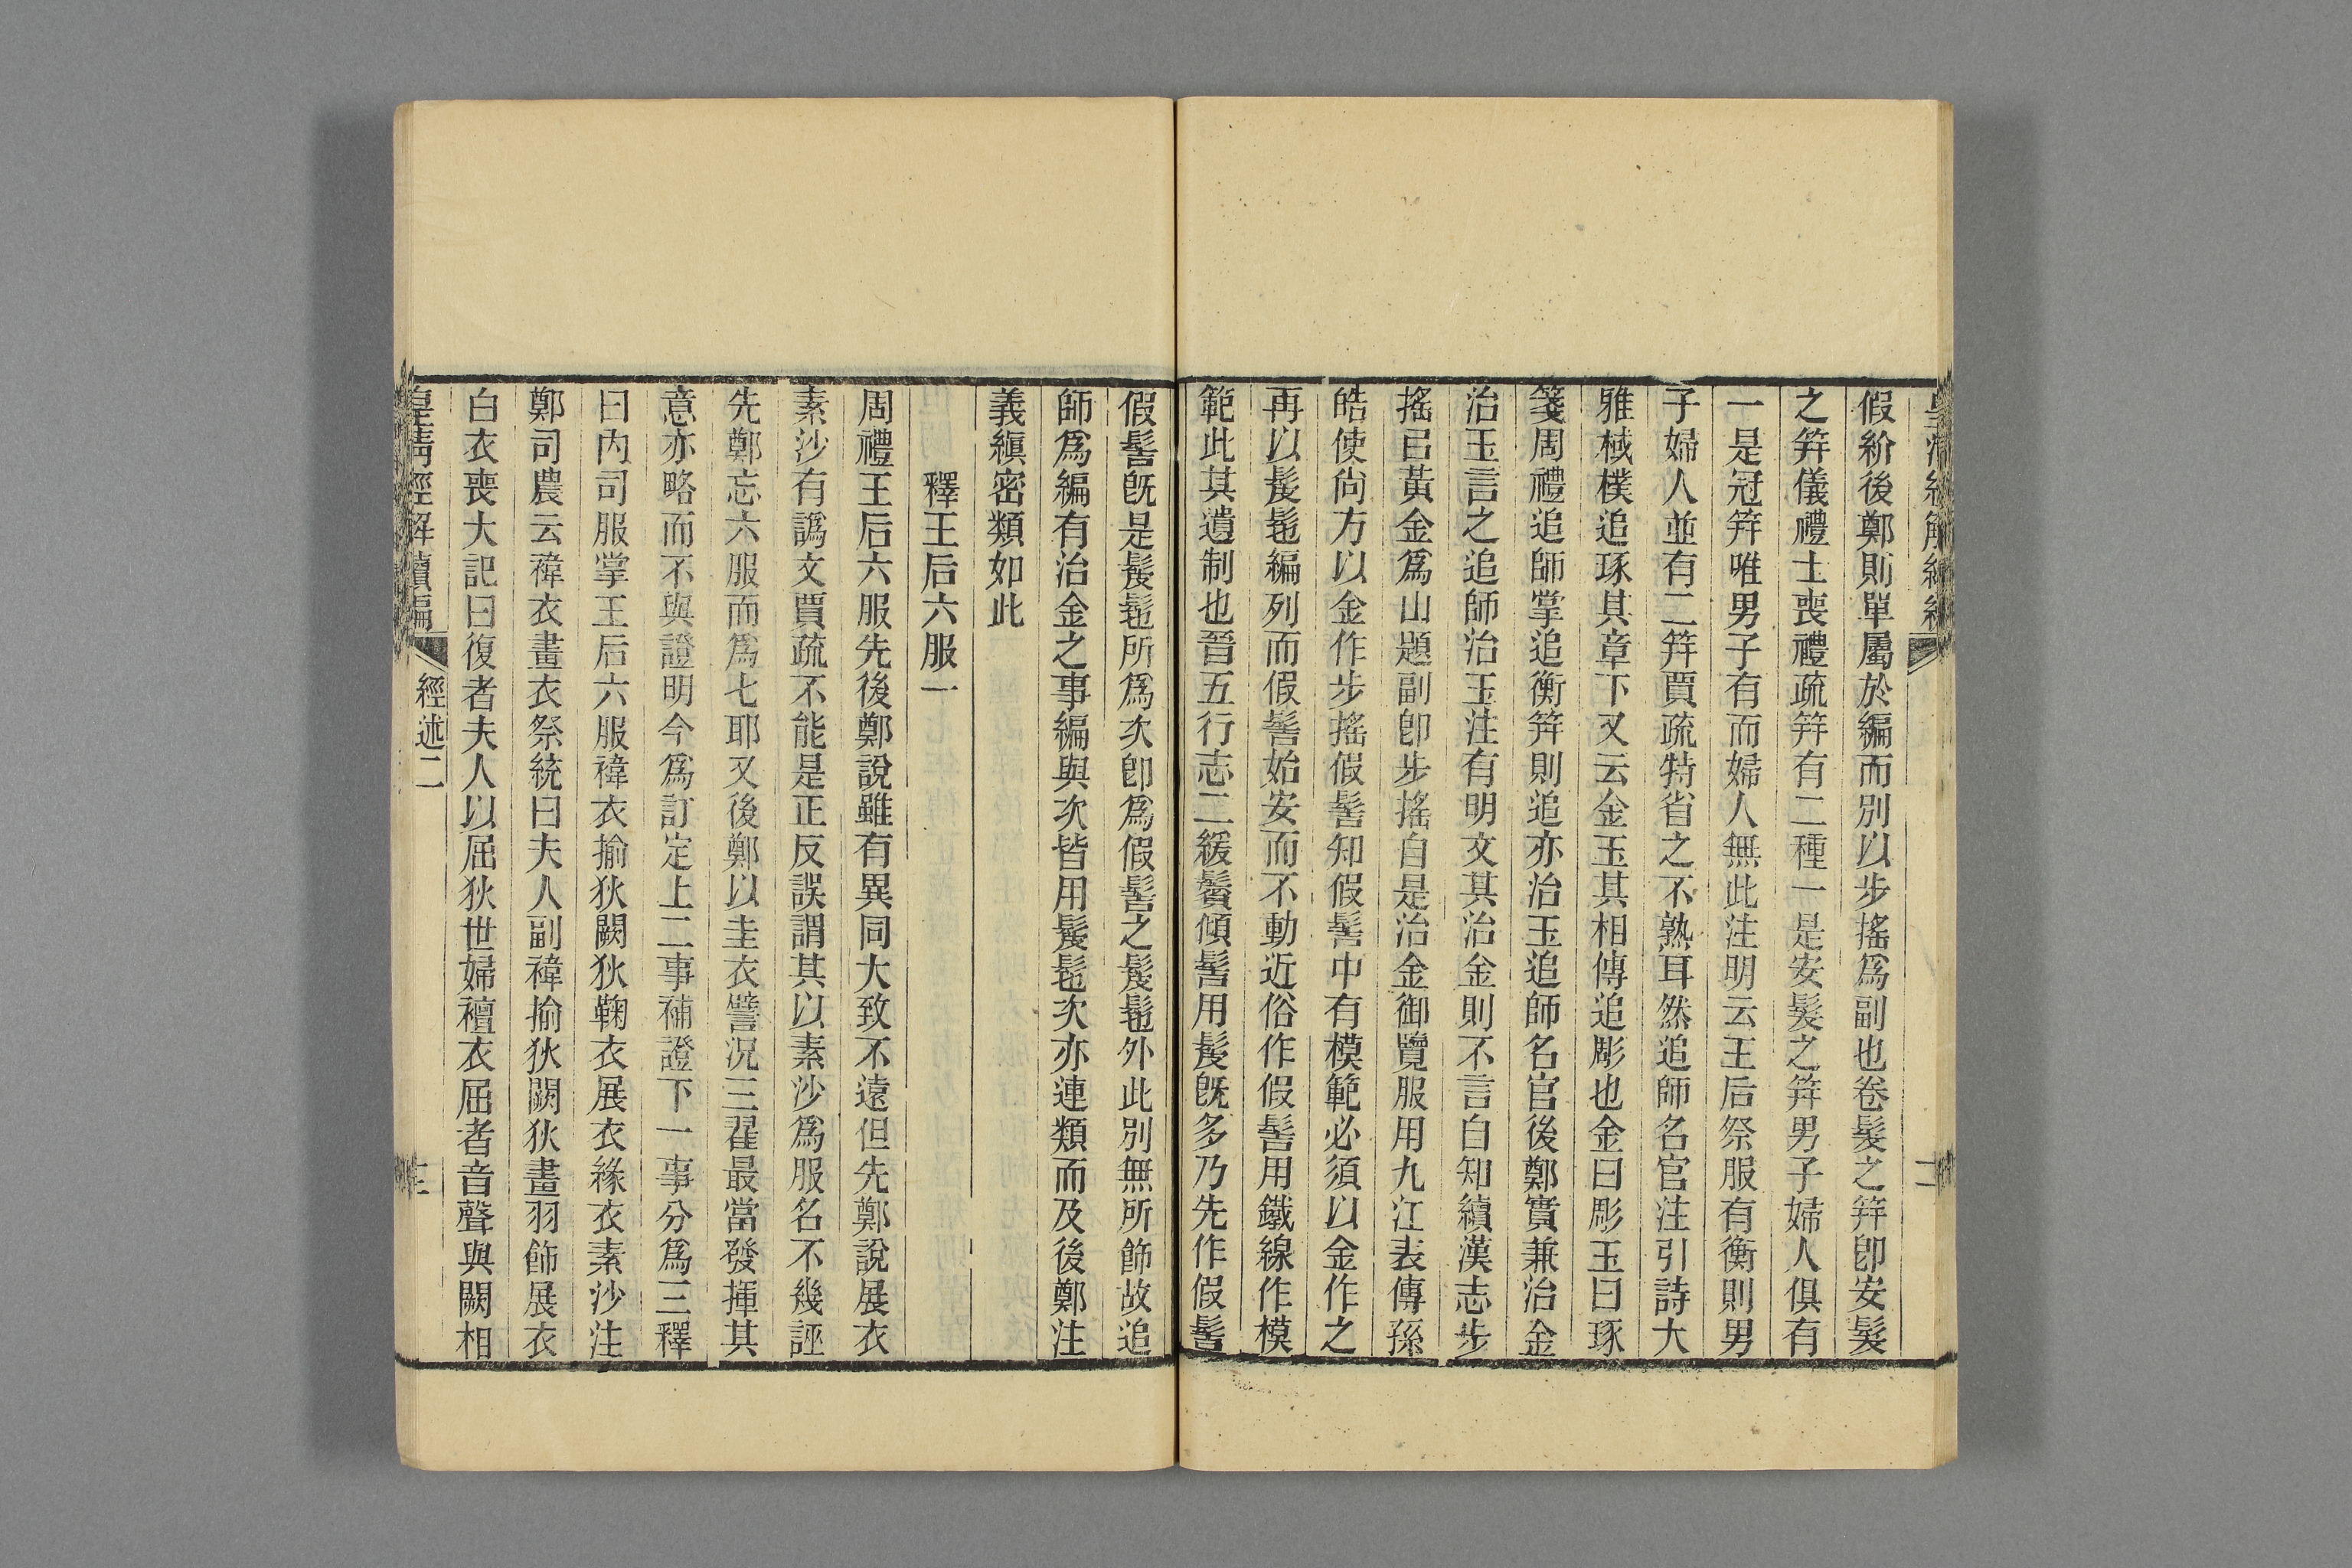 假紒後鄭則單屬於編而別以步搖爲副也卷髮之笄卽安髮
之笄儀禮士喪禮疏笄有二種一是安髮之笄男子婦人俱有
一是冠笄唯男子有而婦人無此注明云王后祭服有衡則男
子婦人並有二笄賈疏特省之不熟耳然追師名官注引詩大
雅棫樸追琢其章下又云金玉其相傳追彫也金曰彫玉曰琢
箋周禮追師掌追衡笄則追亦治玉追師名官後鄭實兼治金
治玉言之追師治玉注有明文其治金則不言自知續漢志步
搖㠯黃金爲山題副卽步搖自是治金御覽服用九江表傳孫
皓使尙方以金作步搖假髻知假髻中有模範必須以金作之
再以髲髢編列而假髻始安而不動近俗作假髻用鐵線作模
範此其遺制也晉五行志二緩鬢傾髻用髲旣多乃先作假髻
假髻旣是髲髢所爲次卽爲假髻之髲髢外此別無所飾故追
師爲編有治金之事編與次皆用髲髢次亦連類而及後鄭注
義縝密類如此
釋王后六服一
周禮王后六服先後鄭說雖有異同大致不遠但先鄭說展衣
素沙有譌文賈疏不能是正反誤謂其以素沙爲服名不幾誣
先鄭忘六服而爲七耶又後鄭以圭衣譬況三翟最當發揮其
意亦略而不與證明今爲訂定上二事補證下一事分爲三釋
曰內司服掌王后六服褘衣揄狄闕狄鞠衣展衣緣衣素沙注
鄭司農云褘衣畫衣祭統曰夫人副褘揄狄闕狄畫羽飾展衣
白衣喪大記曰復者夫人以屈狄世婦襢衣屈者音聲與闕相
皇淸經解續編
經述二